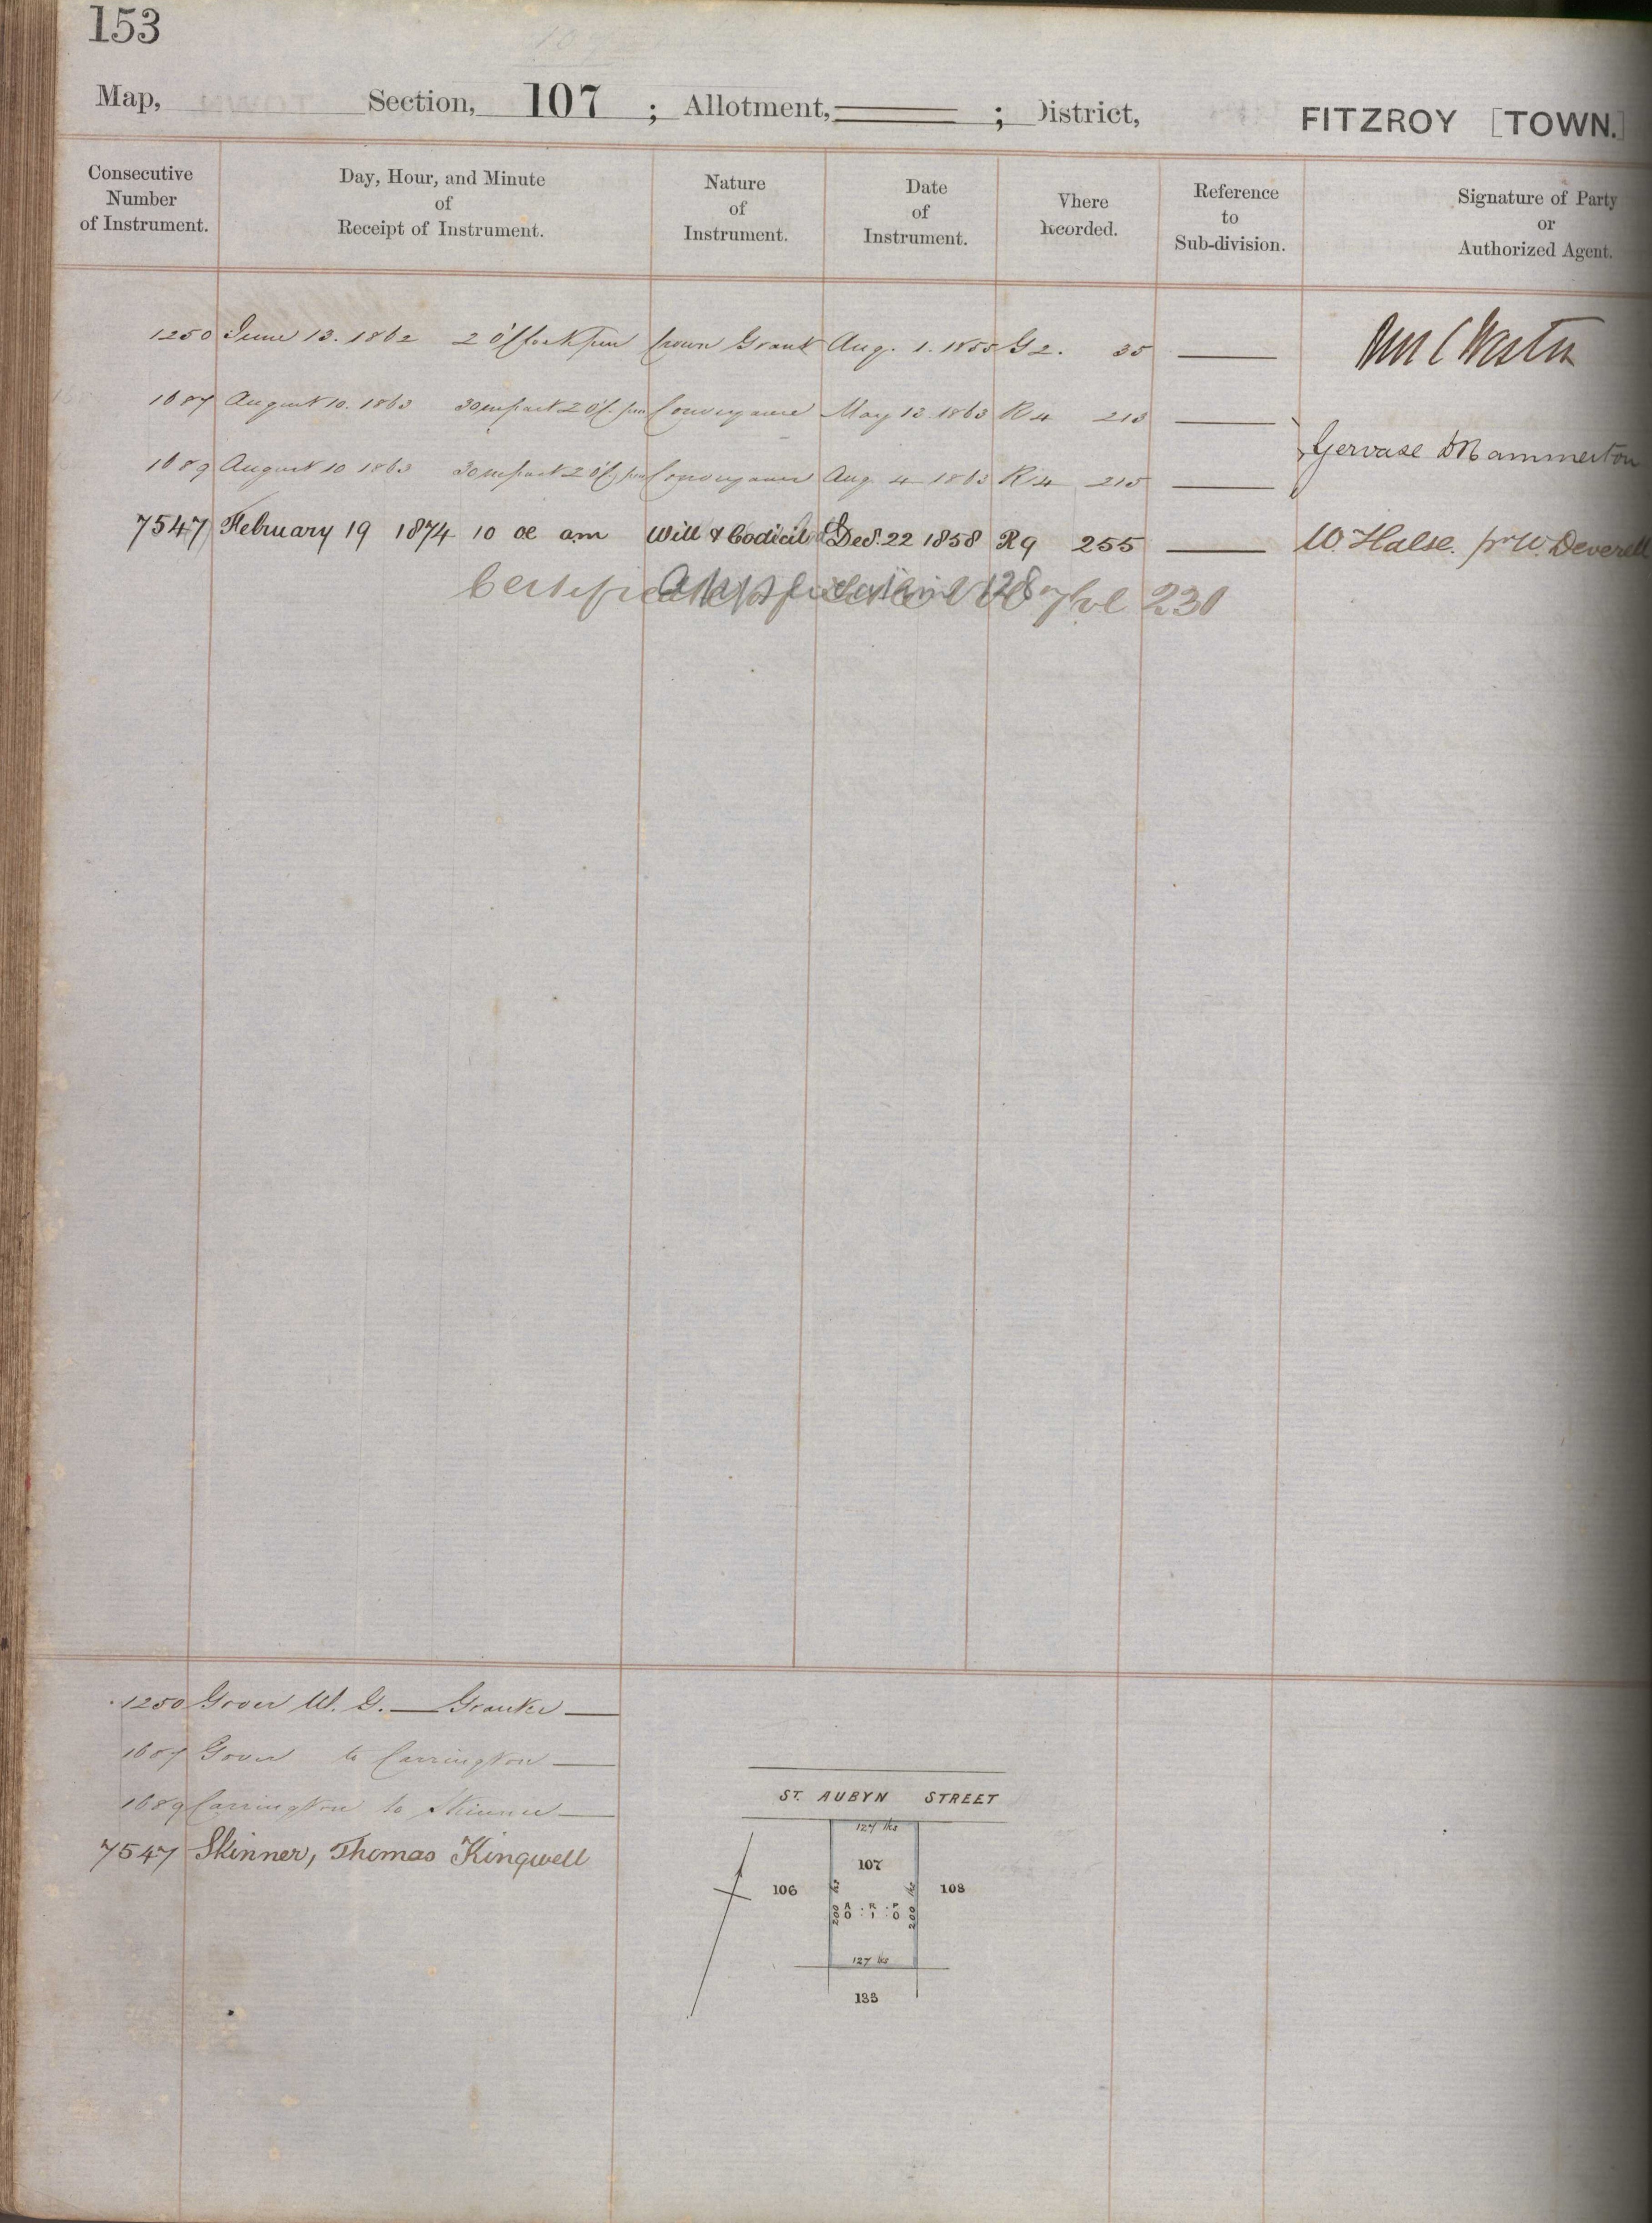 153
Map, Section, 107 ; Allotment, ; District, FITZROY [TOWN.]
Consecutive Number of Instrument.
Day, Hour, and Minute of Receipt of Instrument.
Nature of Instrument.
Date of Instrument.
Where Recorded.
Reference to Sub-division.
Signature of Party or Authorized Agent.
1250 June 13. 1862 2 o'Clock pm Crown Grant Aug. 1. 1855 G 2. 35
1687 August 10. 1863 30 m past 2 o'C. pm Conveyance May 13. 1863 R 4 213
1689 August 10 1863 30 m past 2 o'C. pm Conveyance Aug 4 1863 R 4 215 Gervase D Hammerton
7547 February 19 1874 10 oc am Will & Codicil Decr. 22 1858 R 9 255 W. Halse. pr W. Deverell
Certificate 230
1250 Gover W. G. Grantee
1687 Gover to Carrington
1689 Carrington to Skinner
7547 Skinner, Thomas Kingwell
ST. AUBYN STREET
127 lks
107
106
108
200 lks
A R P
0 : 1 : 0
200 lks
127 lks
133